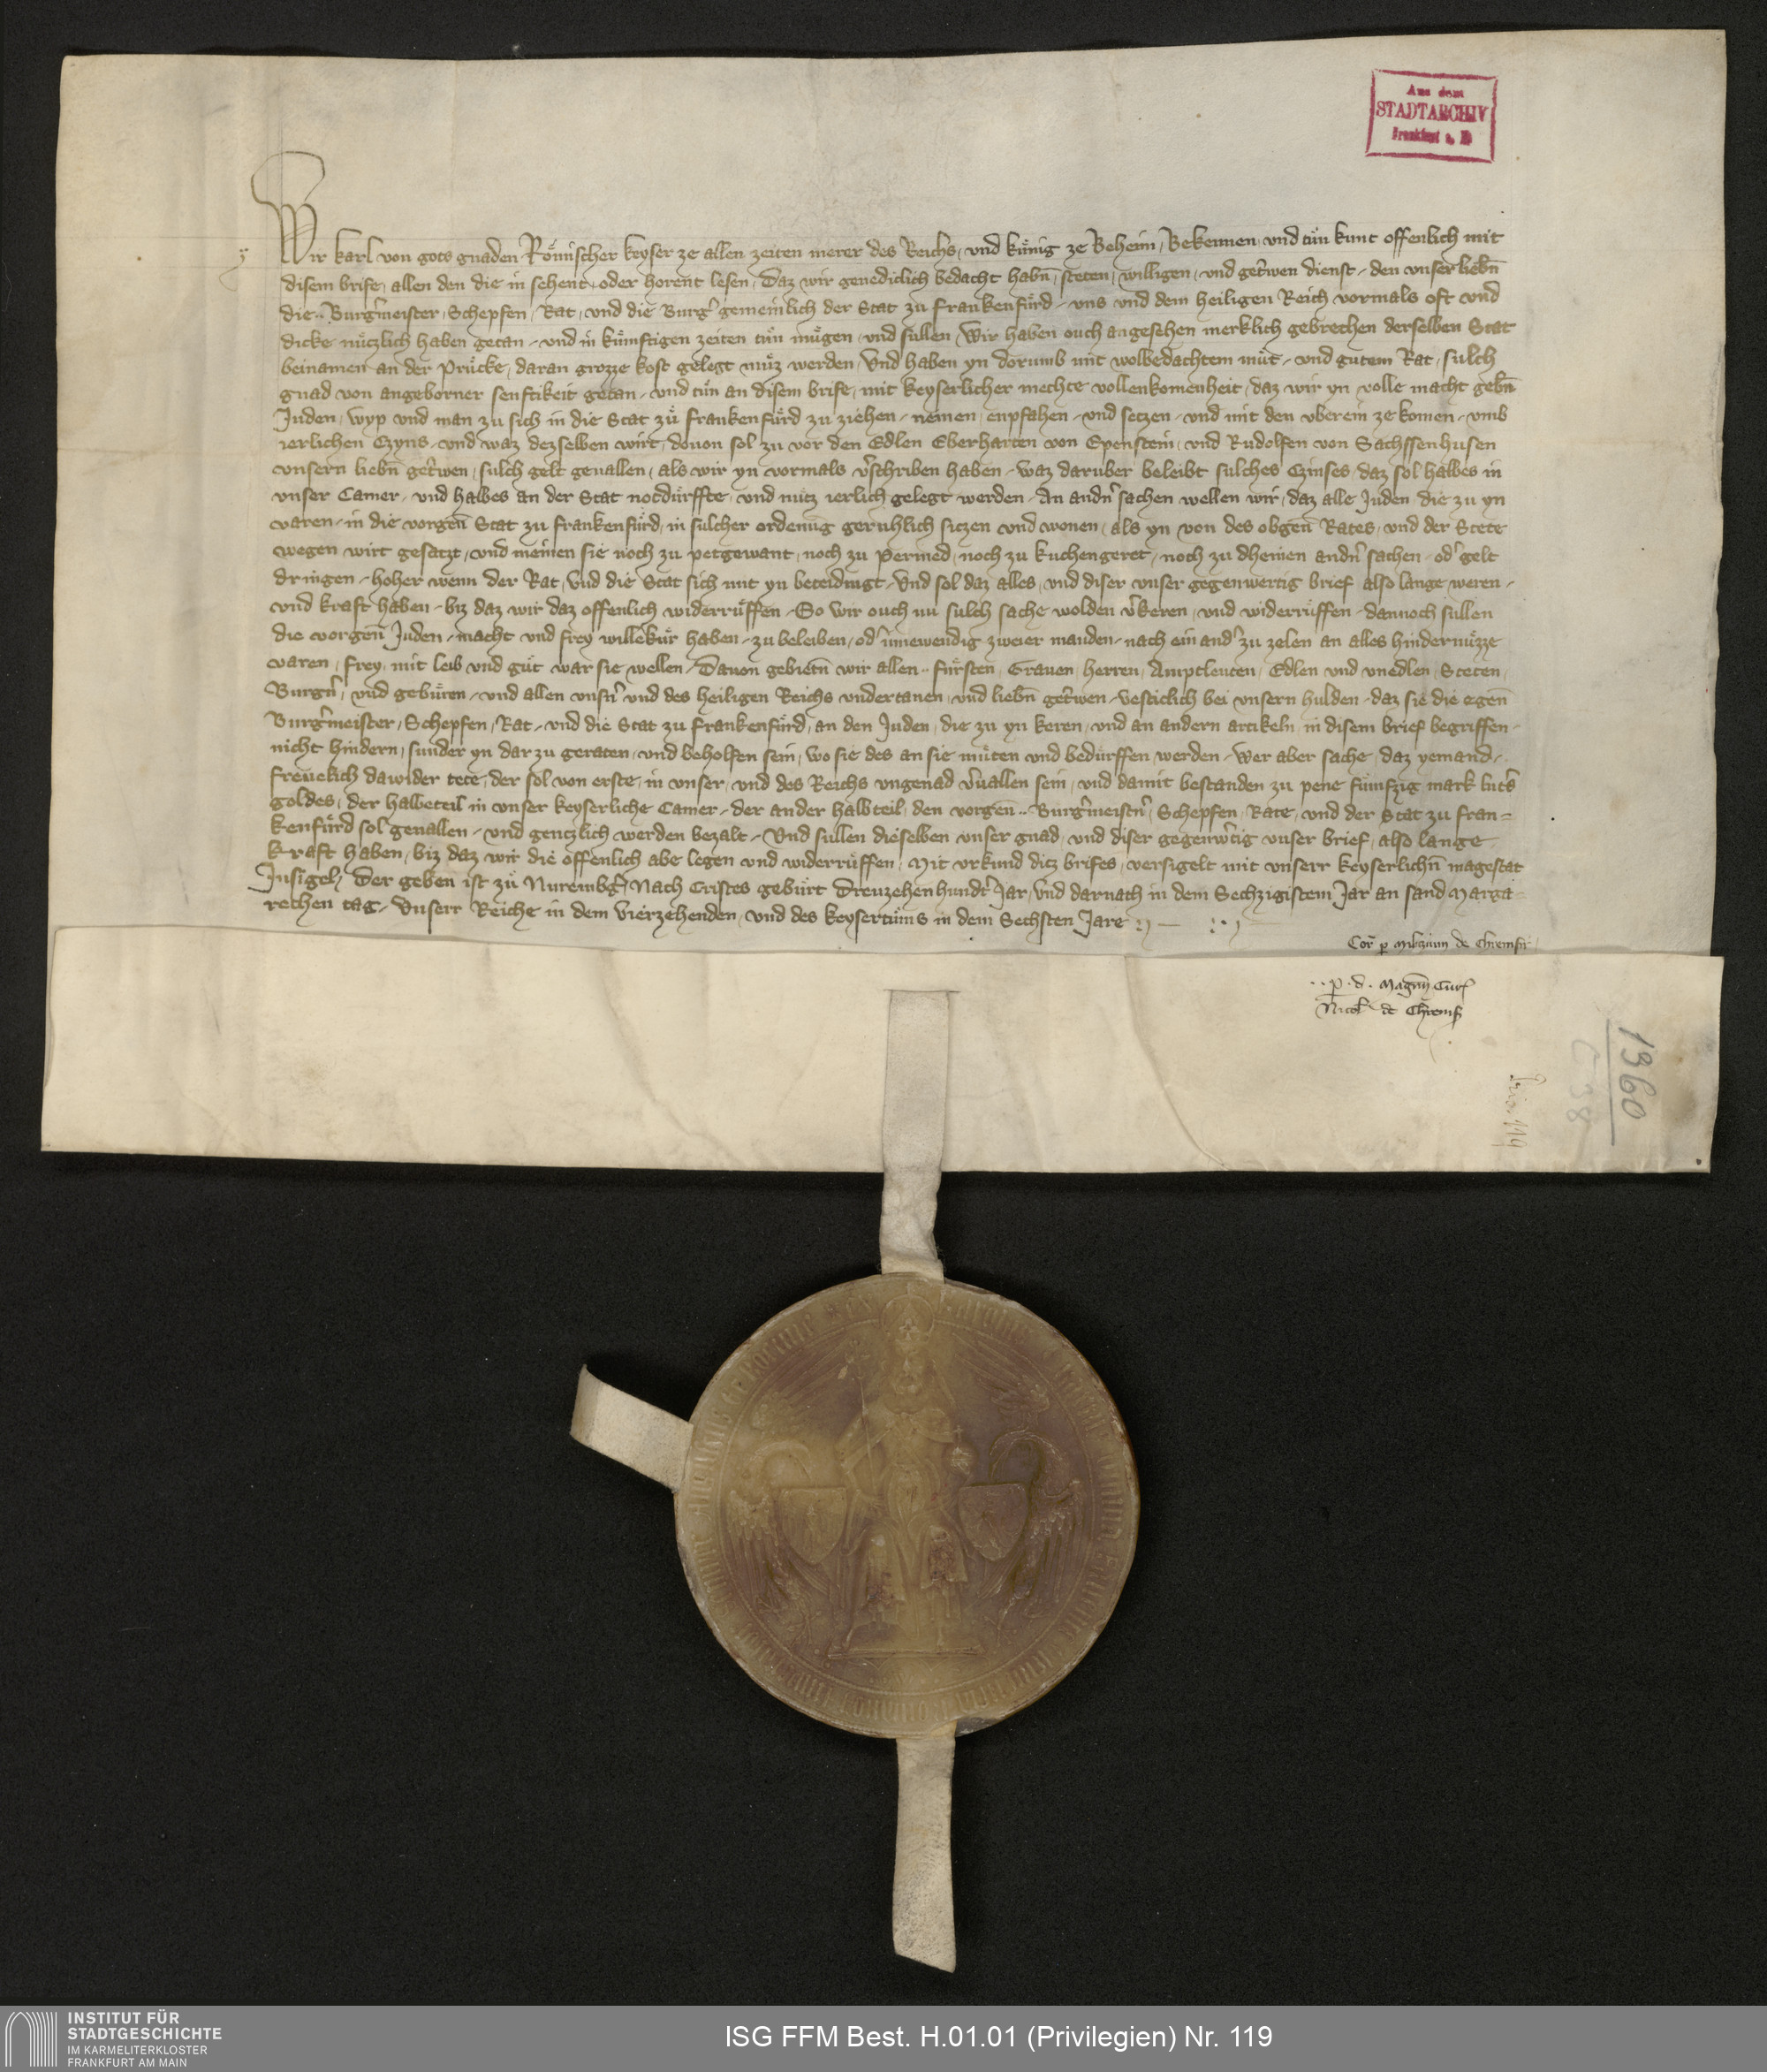 Aus dem
STADTARCHIV
Frankfurt a. M
Wir karl von gots gnaden Romischer keyser ze allen zeiten merer des Reichs, und kunig ze Beheim, Bekennen und tun kunt offenlich mit
disem brife, allen den die in sehent oder horent lesen, Daz wir genediclich bedacht habn̄, steten, willigen, und getrwen dienst, den unser liebn̄
die .. Burgermeister, Schepfen, Rat, und die Burger gemeinlich der Stat zu Frankenfurd, uns und dem heiligen Reich vormals oft und
dicke nuczlich haben getan, und in kumftigen zeiten tun mugen, und sullen Wir haben ouch angesehen merklich gebrechen derselben Stat
beinamen an der Prucke, daran grozze kost gelegt muz werden, Und haben yn dorumb mit wolbedachtem mut, und gutem Rat, sulch
gnad von angeborner senftikeit getan, und tun an disem brife, mit keyserlicher mechte vollenkomenheit, daz wir yn volle macht gebn̄
Juden, wyp und man zu sich in die Stat zu Frankenfurd zu ziehen, nemen, enpfahen, und setzen, und mit den uberein ze komen, umb
ierlichen Czyns, und waz dezselben wirt, dovon sol zu vor den Edlen Eberharten von Epenstein, und Rudolfen von Sachssenhusen
unsern liebn̄ getrwen, sulch gelt gevallen, als wir yn vormals vschriben haben, waz daruber beleibt sulches Czinses, daz sol halbes in
unser Camer, und halbes an der Stat notdurffte, und nutz ierlich gelegt werden, An andn sachen wellen wir, daz alle Juden die zu yn
varen, in die vorgen̄ Stat zu Frankenfurd, in sulcher ordenug geruhlich siczen und wonen, als yn von des obgen̄ Rates, und der Stete
wegen wirt gesatzt, und meinen sie noch zu petgewant, noch zu Permed, noch zu kuchengeret, noch zu dheinen andn sachen, od gelt
dringen, hoher wenn der Rat, und die Stat sich mit yn beteidingt, Und sol daz alles, und diser unser gegenwertig brief also lange weren,
und kraft haben, biz daz wir daz offenlich widerruffen, So wir ouch nu sulch sache wolden vkeren, und widerruffen, dannoch sullen
die vorgen̄ Juden, macht und frey willekur haben, zu beleiben, od innewendig zweier manden, nach ein and zu zelen an alles hindernuzze
varen, frey, mit leib und gut war sie wellen, Davon gebietn̄ wir allen .. Fursten, Graven, herren, Amptleuten, Edlen und unedlen, Steten,
Burgn, und geburen, und allen unsn und des heiligen Reichs undertanen, und liebn̄ getrwen, vesticlich bei unsern hulden, daz sie die egen̄
Burgermeister, Schepfen, Rat, und die Stat zu Frankenfurd, an den Juden, die zu yn keren, und an andern artikeln, in disem brief begriffen,
nicht hindern, sunder yn dar zu geraten, und beholfen sein, wo sie des an sie muten und bedurffen werden, Wer aber sache, daz yemand,
frevelich dawider tete, der sol von erste, in unser, und des Reichs ungenad vvallen sein, und damit bestanden zu pene fumfzig mark luts
goldes, der halbeteil in unser keyserliche Camer, der ander halbteil, den vorgen̄ .. Burgermeistn, Schepfen, Rate, und der Stat zu Fran-
kenfurd sol gevallen, und genczlich werden bezalt, Und sullen dieselben unser gnad, und diser gegenwtig unser brief, also lange
kraft haben, biz daz wir die offenlich abe legen und widerruffen, Mit urkund dicz brifes, versigelt mit unserr keyserlichn̄ magestat
Insigel, Der geben ist zu Nuremberg, Nach Cristes geburt Dreuzehenhundt Jar, Und darnach in dem Sechzigistem Jar an sand Marga-
rethen tag, Unserr Reiche in dem vierzehenden, und des keysertums in dem Sechsten Jare
Cor p Miliczium de Chremsir
.. p . d . Magrm Cur
Nicol de Chrems
1360
C 38
119
INSTITUT FÜR
STADTGESCHICHTE
IM KARMELITERKLOSTER
FRANKFURT AM MAIN
ISG FFM Best. H.01.01 (Privilegien) Nr. 119